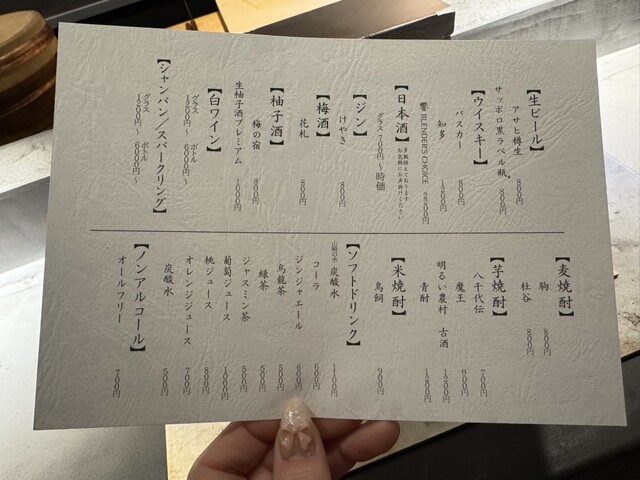 【生ビール】
アサヒ樽生 800円
サッポロ黒ラベル瓶 800円
【ウイスキー】
バスカー 800円
知多 1200円
響 BLENDER'S CHOICE 2200円
【日本酒】
多数揃えております
お気軽にお声掛けください
グラス 700円〜時価
【ジン】
けやき 800円
【梅酒】
花札 800円
【柚子酒】
梅の宿 800円
生柚子酒プレミアム 1000円
【白ワイン】
グラス 1200円〜
ボトル 6000円〜
【シャンパン／スパークリング】
グラス 1200円〜
ボトル 6000円〜
【麦焼酎】
駒 800円
杜谷 800円
【芋焼酎】
八千代伝 700円
魔王 900円
明るい農村 古酒 1200円
青酎 1200円
【米焼酎】
鳥飼 900円
【ソフトドリンク】
山崎の水 炭酸水 1100円
コーラ 500円
ジンジャエール 600円
烏龍茶 500円
緑茶 500円
ジャスミン茶 500円
葡萄ジュース 1000円
桃ジュース 800円
オレンジジュース 700円
炭酸水 500円
【ノンアルコール】
オールフリー 700円